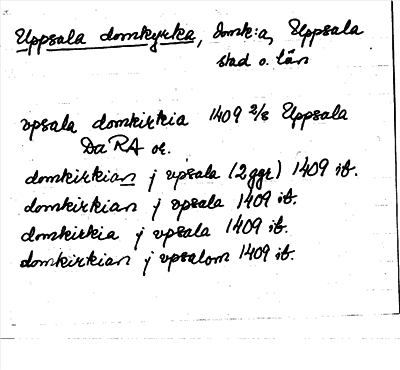 Uppsala domkyrka, domk:a, Uppsala
stad o. län
vpsala domkirkia 1409 2/8 Uppsala
DaRA or.
domkirkian j vpsala (2 ggr) 1409 ib.
domkirkian j vpsala 1409 ib.
domkirkia j vpsala 1409 ib.
domkirkian j vpsalom 1409 ib.